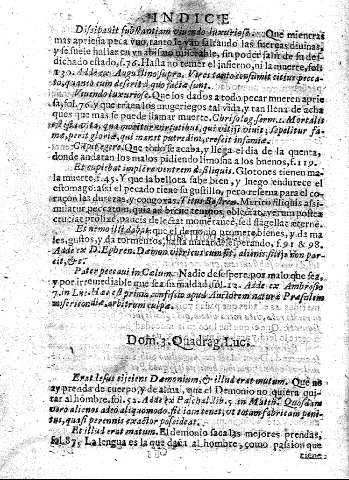 INDICE
Dissipauit substantiam viuendo luxuriose. Que mientras
mas apriessa peca vno, tanto le van faltando las fuerças diuinas,
y se suele hallar en vn abismo miserable, sin poder salir de su des-
dichado estado, f.76. Hasta no temer el infierno, ni la muerte, fol.
130. Adde ex Augustino supra. Vires tanto consumit citius pecca-
to, quanto cum deserit à quo factus sunt.
Viuendo luxuriose. Que los dados a todo pecar mueren aprie-
sa, fol.76. y que traen los mugeriegos tal vida, y tan llena de acha
ques que mas se puede llamar muerte. Chrysolog. serm. Mortalis
est ista vita, qua
ma, perit gloria, qui manet putredini, crescit infamia.
Cœpit egere. Que todo se acaba, y llega el dia de la quenta,
donde andaran los malos pidiendo limosna a los buenos, f.119.
Et cupiebat implere ventrem de siliquis. Glotones tienen ma-
la muerte, f.45. Y que la bellota sabe bien, y luego endurece el
estomago: assi el pecado tiene su gustillo, pero reserua para el co-
raçon las durezas, y congoxas. Titus Bostren. Merito siliquis assi-
milatur peccatum, quia ad breue tempus, oblectat, verum postea
cruciat
Et nemo illi dabat. que el demonio promete bienes, y da ma-
les, gustos, y da tormentos, hasta matar desesperando, f.91 & 98.
Adde ex D. Ephren. Dæmon vitricus cum sit, alienis filijs non par-
cit, &c.
Pater peccaui in Cælum. Nadie desespere por malo que sea,
y por irremediable que sea su maldad fol.12. Adde ex Ambrosio
7. in Luc. Hæc est prima confessio apud Auctorem naturæ Præsulem
misericordiæ, arbitrum culpæ.
Dom. 3. Quadrag. Luc.
Erat Iesus eijciens Dæmonium, & illud erat mutum. Que no
ay prenda de cuerpo, y de alma, que el Demonio no quiera qui-
tar al hombre. fol.52. Adde ex Paschas. lib.5. in Matth. Quosdam
vero alienos adeo aliquomodo sic iam tenet, vt totam fabricam peni-
tus, quasi perennis exactor possideat.
Et illud erat mutum. El demonio saca las mejores prendas,
fol.87. La lengua es la que daña al hombre, como passion que
tiene